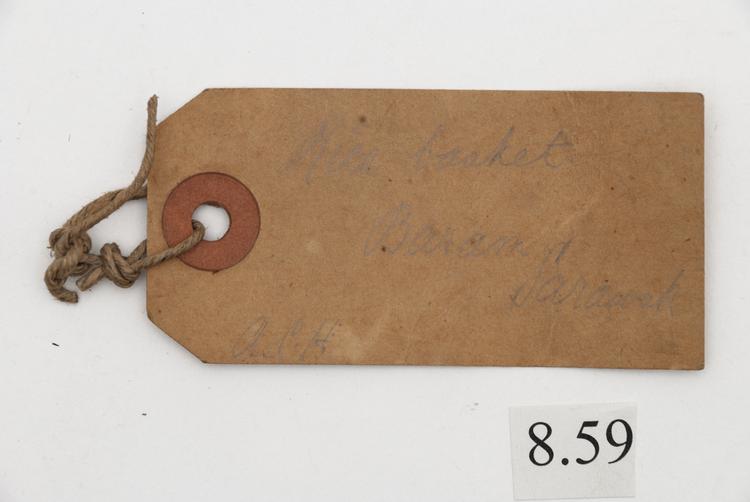 Rice basket
Baram
Sarawak
A.C.H
8.59